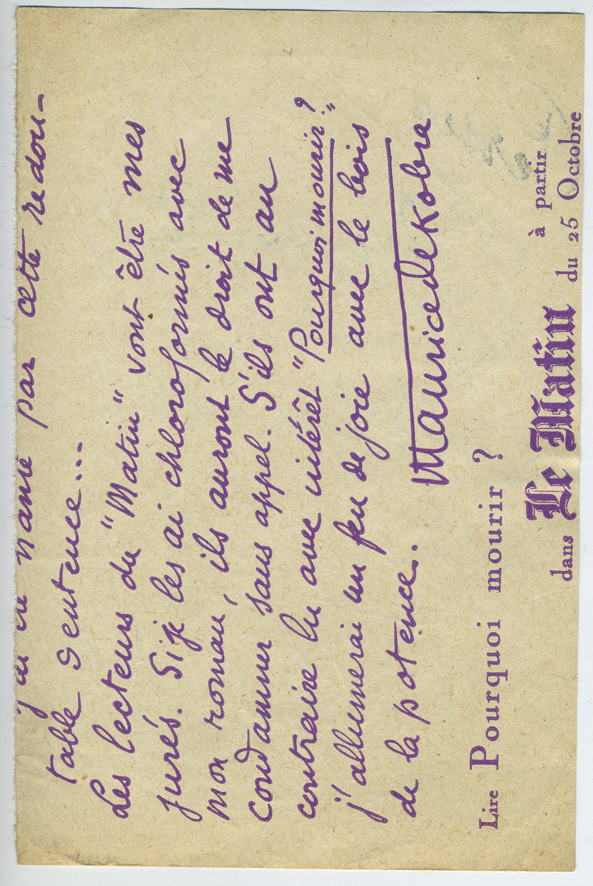 par cette redou-
table sentence...
Les lecteurs du "Matin" vont être mes
jurés. Si je les ai chloroformés avec
mon roman, ils auront le droit de me
condamner sans appel. S'ils ont au
contraire lu avec intérêt "Pourquoi mourir?"
j'allumerai un feu de joie avec le bois
de la potence.
Maurice Dekobra
Lire Pourquoi mourir ?
dans Le Matin à partir
du 25 Octobre